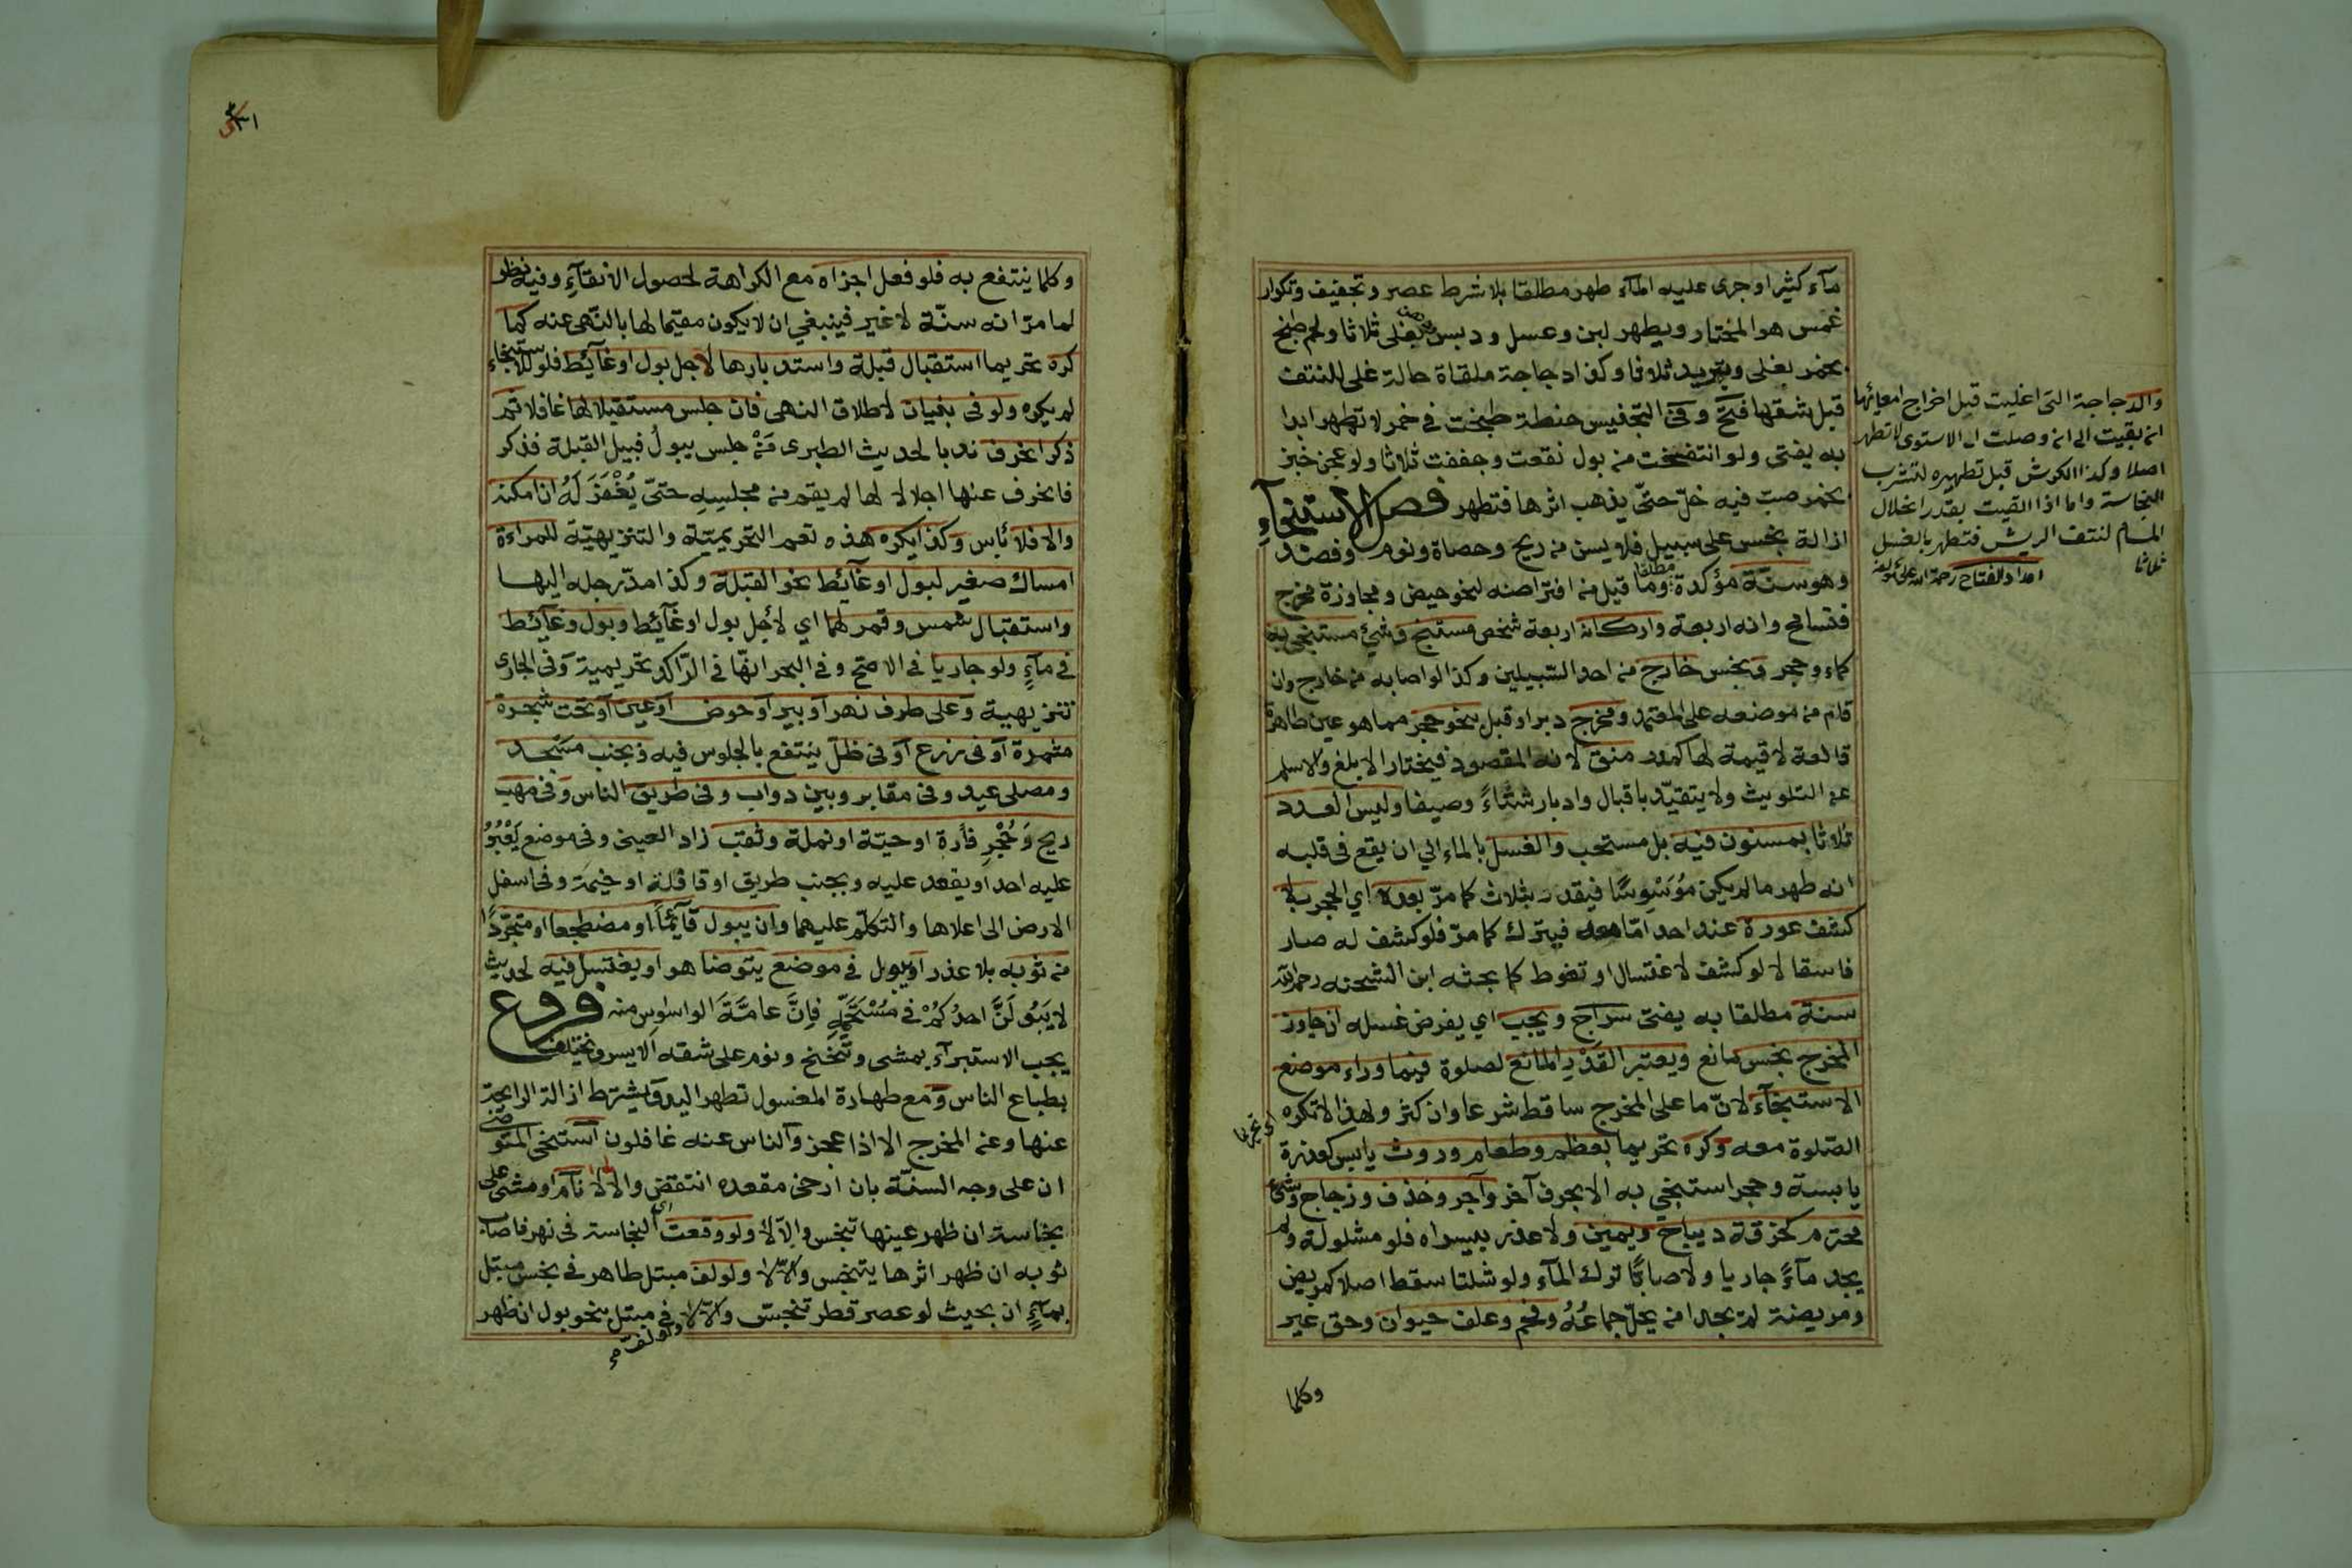 مآء كثير او جرى عليه المآء طهر مطلقا بلا شرط عصر وتجفيف وتكرار
غمس هو المختار ويطهر لبن وعسل ودبس يغلى ثلاثا ولحم طبخ
بخمر بغلى وتبريد ثلاثا وكذا دجاجة ملقاة حالة غلى للنتف
قبل شقها فتح وفى التجنيس حنطة طبخت في خمر لا تطهر ابدا
به يفتى ولو انتفخت من بول نقعت وجففت ثلاثا ولو عجن خبز
بخمر صب فيه خلّ حتىّ يذهب اثرها فتطهر فصل الاستنجآء
ازالة نجس على سبيل فلا يسن من ريح وحصاة ونوم وفصد
وهو سنّة مؤكدة مطلقا وما قيل من افتراضه لنحو حيض ومجاوزة مخرج
فتسامح وانه اربعة واركانه اربعة شخص مستنج وشئ مستنجى به
كماء وحجر ونجس خارج من احد السّبيلين وكذا لو اصابه من خارج وان
قام من موضعه على المعتمد ومخرج دبر او قبل بنحو حجر مما هو عين طاهرة
قالعة لا قيمة لها كمدر منق لانه المقصود فيختار الابلغ والاسلم
عن التلويث ولا يتقيّد باقبال وادبار شتاءً وصيفا وليس العدد
ثلاثا بمسنون فيه بل مستحب والغسل بالماء الي ان يقع فى قلبه
انه طهر ما لم يكن مُوَسْوِسًا فيقدر بثلاث كما مرّ بعده اي الحجر بلا
كشف عورة عند احد امّا معه فيترك كما مرّ فلو كشف له صار
فاسقا لا لو كشف لاغتسال او تغوط كما بحثه ابن الشحنه رحمه الله
سنة مطلقا به يفتى سراج ويجب اي يفرض غسله ان جاوز
المخرج نجس مانع ويعتبر القَدْرُ المانع لصلوة فيما وراء موضع
الاستنجآء لانّ ما على المخرج ساقط شرعا وان كثر ولهذا لا تكره
الصّلوة معه وكره تحريما بعظم وطعام وروث يابس كعذرة
اى تحريما
يابسة وحجر استنجى به الا بحرف آخر وآجر وخذف وزجاج وشئ
محترم كخرقة ديباج ويمين ولا عذر بيسراه فلو مشلولة ولم
يجد مآءً جاريا ولا صابًّا ترك المآء ولو شلتا سقط اصلا كمريض
ومريضة لم يجدا من يحلّ جماعُهُ وفحم وعلف حيوان وحق غير
وكلما
والدجاجة التى اغليت قبل اخراج امعائها
ان بقيت الى ان وصلت الى الاستوى لا تطهر
اصلا وكذا الكرش قبل تطهيره لتشرب
النجاسة واما اذا القيت بقدر انحلال
المسام لنتف الريش فتطهر بالغسل
ثلاثا
امداد الفتاح رحمة الله على مؤلفه
وكلما ينتفع به فلو فعل اجزاه مع الكراهة لحصول الانقآءِ وفيه نظر
لما مرّ انه سنّة لا غير فينبغي ان لا يكون مقيما لها بالنّهى عنه كما
كره تحريما استقبال قبلة واستدبارها لاجل بول او غآئط فلو للاستنجاء
لم يكره ولو فى بنيان لاطلاق النهى فان جلس مستقبلا لها غافلا ثم
ذكر انحرف ندبا لحديث الطبرى مَنْ جلس يبولُ قبيل القبلة فذكر
فانحرف عنها اجلالا لها لم يقم من مجلسِهِ حتىّ يُغْفَرَ لَهُ ان امكنه
والا فلا بأس وكذا يكره هذه تعم التحريميّة والتنزيهيّة للمراءة
امساك صغير لبول او غآئط نحو القبلة وكذا مدّ رجله اليها
واستقبال شمس وقمر لهما اي لأجل بول او غآئط وبول وغآئط
فى مآءٍ ولو جاريا فى الاصح وفى البحر انهّا فى الرّاكد تحريمية وفى الجارى
تنزيهية وعلى طرف نهر او بير او حوض او عين او تحت شجرة
مثمرة او فى زرع او فى ظلّ ينتفع بالجلوس فيه وبجنب مسّجد
ومصلى عيد وفى مقابر وبين دواب وفى طريق الناس وفى مهب
ريح وَجُحْرِ فأرة او حيّة او نملة وثقب زاد العينى وفى موضع يَعْبُرُ
عليه احد او يقعد عليه وبجنب طريق او قافلة او خيمَة وفى اسفل
الارض الى اعلاها والتكلّم عليهما وان يبول قآئمًا او مضطجعا او متجرّدًا
من ثوبه بلا عذر او يبول فى موضع يتوضا هو او يغتسل فيه لحديث
لا يَبُولَنَّ احدُكُمْ فى مُسْتَحَمِّهِ فاِنَّ عامَّةَ الوسواس منه فروع
يجب الاستبرآء بمشى وتنحنح ونوم على شقه الايسر ويختلف
بطباع الناس ومع طهارة المغسول تطهر اليد ويشترط ازالة الرايحة
عنها وعن المخرج الا اذا عجز والناس عنه غافلون استنجى المتوضئ
ان على وجه السنّة بان ارخى مقعده انتقض والا لا نام او مشى على
نجاسة ان ظهر عينها تنجس والّا لا ولو وقعت اى النجاسة فى نهر فاصاب
ثوبه ان ظهر اثرها يتنجس والاّ لا ولو لف مبتل طاهر فى نجس مبتل
بمآءٍ ان بحيث لو عصر قطر تنجسّ والاّ لا فى مبتل بنحو بول ان ظهر
ولو لف